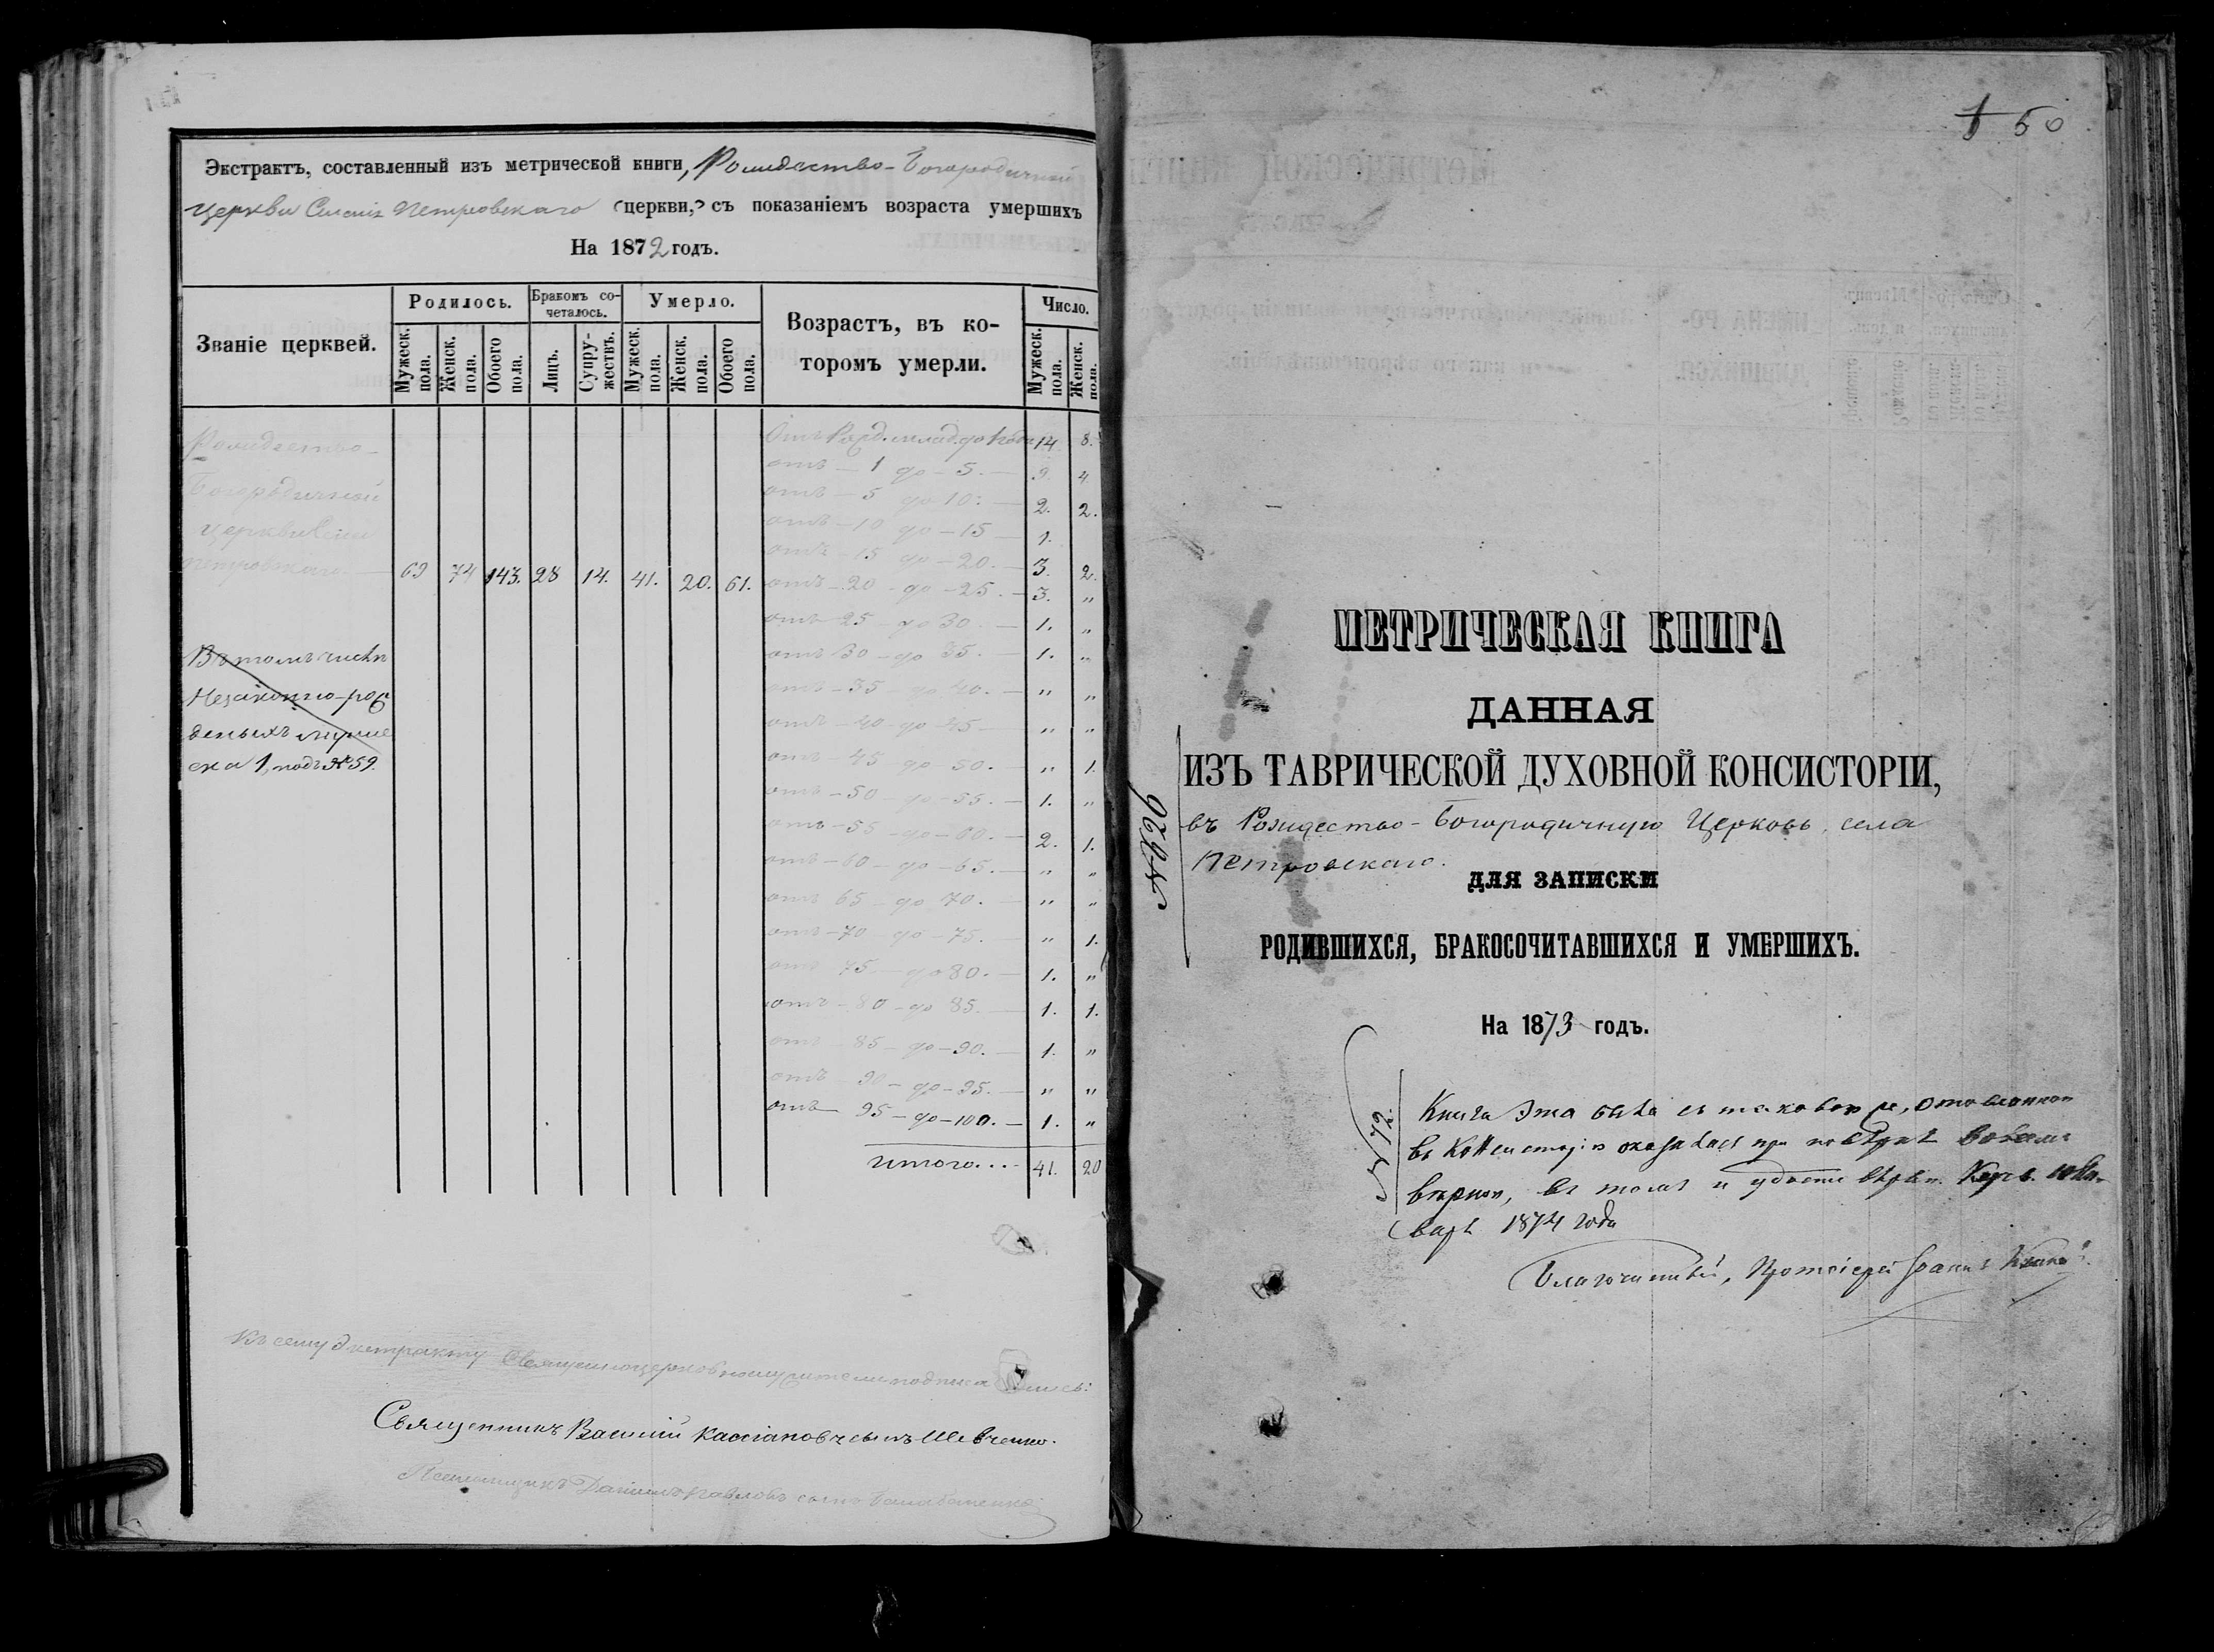 Экстрактъ, составленный изъ метрической книги, Рождество-Богородичной
церкви Селенія Петровскаго (церкви,) съ показаніемъ возраста умершихъ
На 1872 годъ.
Званіе церквей.
Родилось.
Мужеск. пола.
Женск. пола.
Обоего пола.
Бракомъ со-
четалось.
Лицъ.
Супру-
жествъ.
Умерло.
Мужеск. пола.
Женск. пола.
Обоего пола.
Возрастъ, въ ко-
торомъ умерли.
Число.
Мужеск. пола.
Женск. пола.
Рождество-
Богородичной
церкви Селен
Петровскаго 69 74 143. 28 14. 41. 20. 61.
Въ томъ числѣ
Незаконно-рож
денныхъ
1, подъ № 59.
Отъ Рожд. млад. до 1 года 14 8.
отъ - 1 до - 5. - 9 4.
отъ - 5 до 10. - 2. 2.
отъ - 10 до - 15 - 1.
отъ - 15 до - 20. - 3. 2.
отъ - 20 - до - 25. - 3. "
отъ - 25 - до 30. - 1. "
отъ 30 - до 35. - 1. "
отъ - 35 до 40. - " "
отъ - 40 - до - 45 - " "
отъ - 45 до - 50. - " 1.
отъ - 50 - до - 55. - 1. "
отъ - 55 - до - 60. - 2. 1.
отъ - 60 - до - 65. - " "
отъ 65 - до 70. - " "
отъ - 70 до - 75. - " 1.
отъ 75 - до 80. - 1. "
отъ - 80 - до 85. - 1. 1.
отъ 85 - до - 90. - 1. "
отъ 90 - до - 95. - " "
отъ - 95 - до - 100. - 1. "
Итого... - 41. 20
Къ сему Экстракту Священноцерковнослужители подписались:
Священникъ Василій Кассіановъ сынъ Шевченко.
Псаломщикъ Даніилъ Павловъ сынъ
1 50
МЕТРИЧЕСКАЯ КНИГА
ДАННАЯ
ИЗЪ ТАВРИЧЕСКОЙ ДУХОВНОЙ КОНСИСТОРІИ,
въ Рождество-Богородичную Церковь, села
Петровскаго.
ДЛЯ ЗАПИСКИ
РОДИВШИХСЯ, БРАКОСОЧИТАВШИХСЯ И УМЕРШИХЪ.
На 1873 годъ.
№ 12.
Книга Эта бывъ съ таковою же,
въ Консисторію оказалась при повѣркѣ во всемъ
вѣрною, въ томъ и
варь 1874 года
Благочинный, Протоіерей Іоаннъ